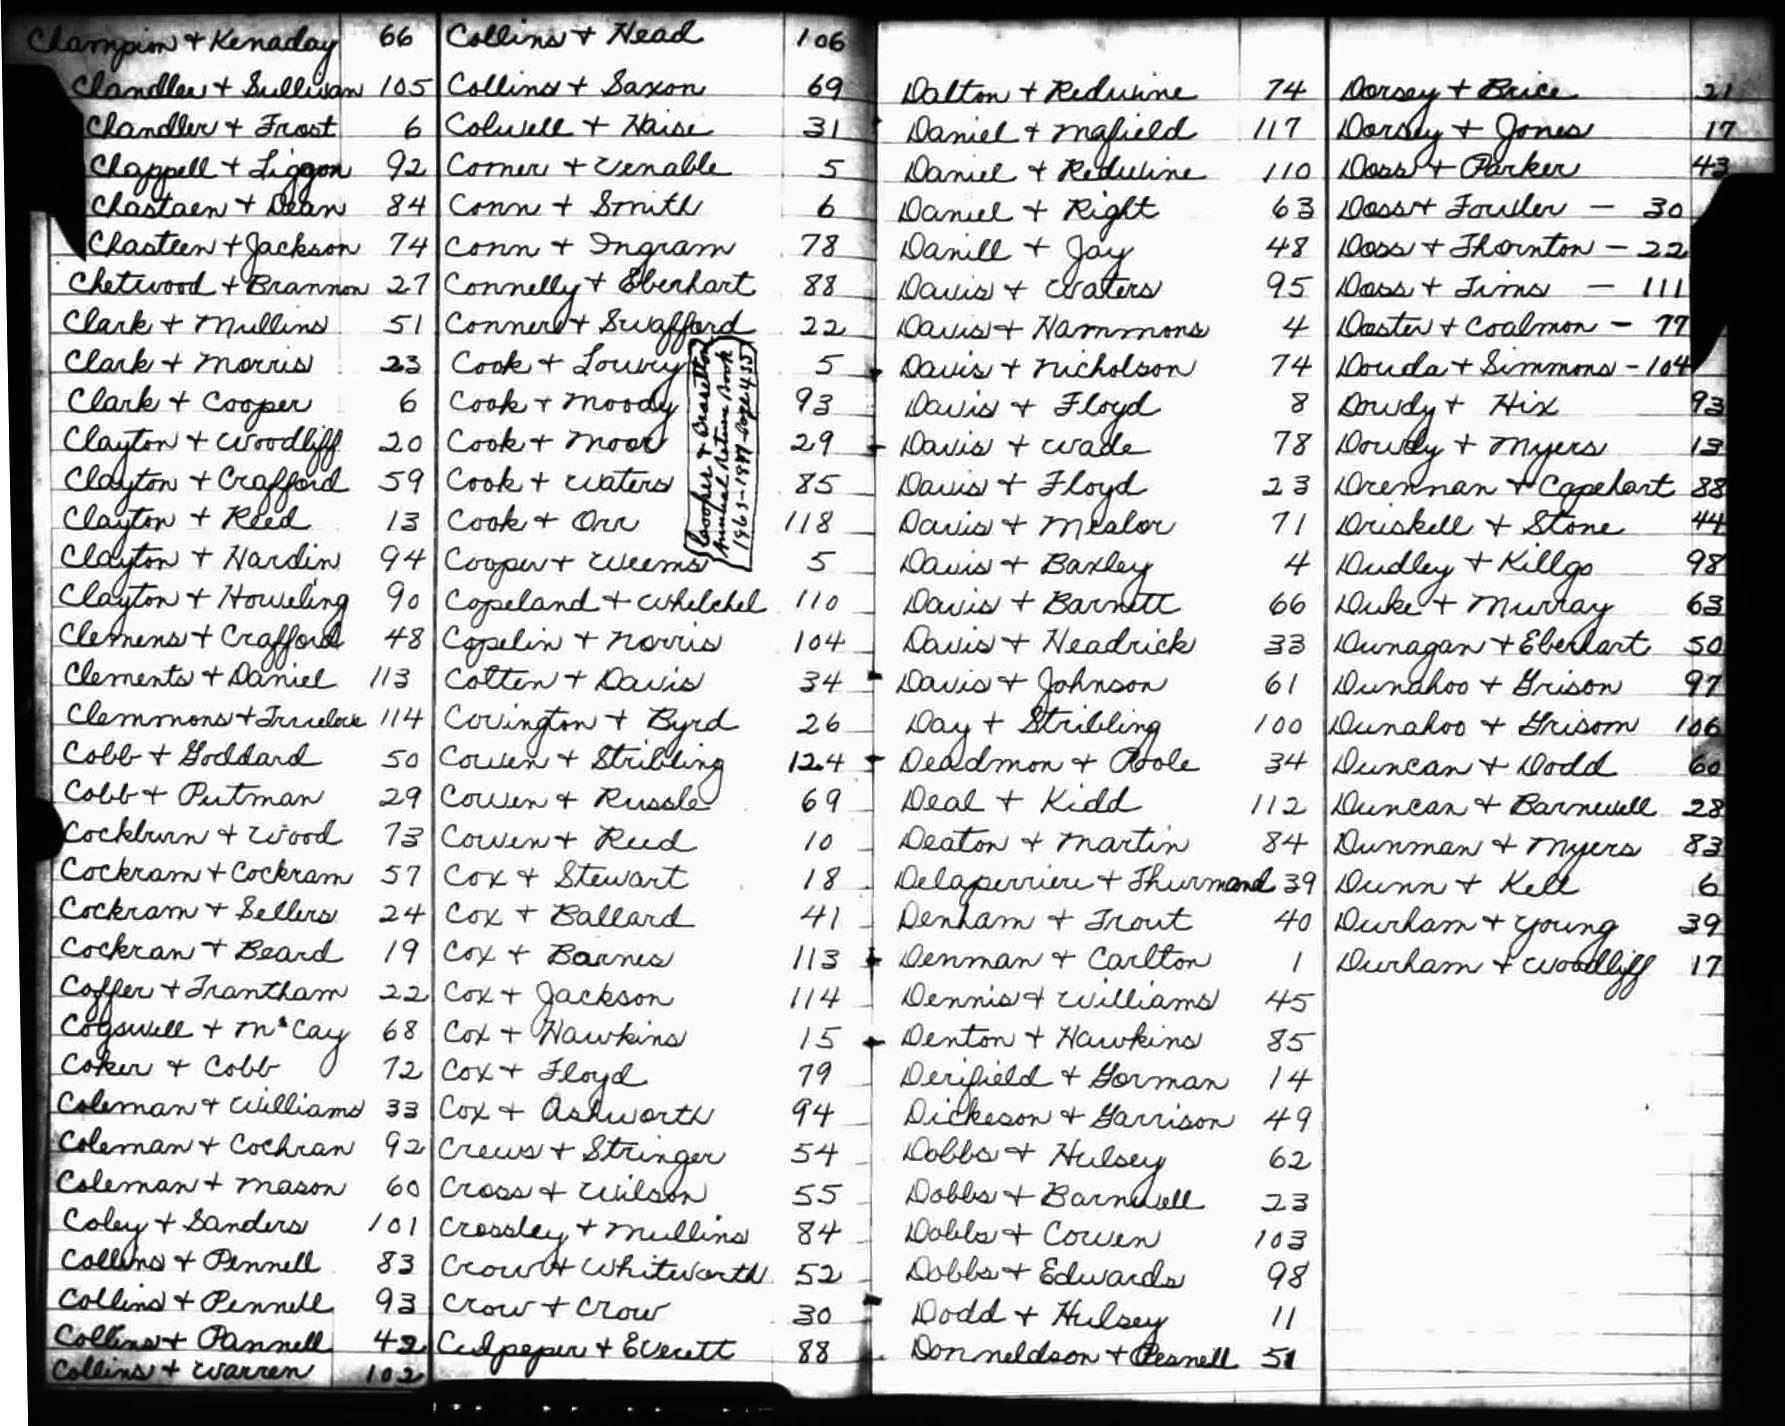 Champion + Kenaday 66
Chandler + Sullivan 105
Chandler + Frost 6
Chappell + Liggon 92
Chastaen + Dean 84
Chasteen + Jackson 74
Chetwood + Brannon 27
Clark + Mullins 51
Clark + Morris 23
Clark + Cooper 6
Clayton + Woodliff 20
Clayton + Crafford 59
Clayton + Reed 13
Clayton + Hardin 94
Clayton + Howeling 90
Clemens + Crafford 48
Clements + Daniel 113
Clemmons + Truelove 114
Cobb + Goddard 50
Cobb + Putman 29
Cockburn + Wood 73
Cockram + Cockram 57
Cockram + Sellers 24
Cockran + Beard 19
Coffer + Trantham 22
Cogswell + McCay 68
Coker + Cobb 72
Coleman + Williams 33
Coleman + Cochran 92
Coleman + Mason 60
Coley + Sanders 101
Collins + Pennell 83
Collins + Pennell 93
Collins + Pannell 42
Collins + Warren 102
Collins + Head 106
Collins + Saxon 69
Colwell + Haise 31
Comer + Venable 5
Conn + Smith 6
Conn + Ingram 78
Connelly + Eberhart 88
Conner + Swafford 22
Cook + Lowry 5
Cook + Moody 93
Cook + Moor 29
Cook + Waters 85
Cook + Orr 118
Cooper + Weems 5
Copeland + Whelchel 110
Copelin + Norris 104
Cotten + Davis 34
Covington + Byrd 26
Cowen + Stribling 124
Cowen + Russle 69
Cowen + Reed 10
Cox + Stewart 18
Cox + Ballard 41
Cox + Barnes 113
Cox + Jackson 114
Cox + Hawkins 15
Cox + Floyd 79
Cox + Ashworth 94
Crews + Stringer 54
Cross + Wilson 55
Crossley + Mullins 84
Crow + Whitworth 52
Crow + Crow 30
Culpeper + Everett 88
+ Braselton
Annual Return Book
Page 455
Dalton + Reduvine 74
Daniel + Mafield 117
Daniel + Reduvine 110
Daniel + Right 63
Danill + Jay 48
Davis + Waters 95
Davis + Hammons 4
Davis + Nicholson 74
Davis + Floyd 8
Davis + Wade 78
Davis + Floyd 23
Davis + Mealor 71
Davis + Baxley 4
Davis + Barnett 66
Davis + Headrick 33
Davis + Johnson 61
Day + Stribling 100
Deadmon + Poole 34
Deal + Kidd 112
Deaton + Martin 84
Delaperriere + Thurmand 39
Denham + Trout 40
Denman + Carlton 1
Dennis + Williams 45
Denton + Hawkins 85
Derifield + Gorman 14
Dickeson + Garrison 49
Dobbs + Hulsey 62
Dobbs + Barnwell 23
Dobbs + Cowen 103
Dobbs + Edwards 98
Dodd + Hulsey 11
Donneldson + Pesnell 51
Dorsey + Brice 21
Dorsey + Jones 17
Doss + Parker 43
Doss + Fowler - 30
Doss + Thornton - 22
Doss + Tims - 111
Doster + Coalmon - 77
Douda + Simmons - 104
Dowdy + Hix 93
Dowdy + Myers 13
Drennan + Capehart 88
Driskell + Stone 44
Dudley + Killgo 98
Duke + Murray 63
Dunagan + Eberhart 50
Dunahoo + Grison 97
Dunahoo + Grisom 106
Duncan + Dodd 60
Duncan + Barnwell 28
Dunman + Myers 83
Dunn + Kell 6
Durham + Young 39
Durham + Woodliff 17